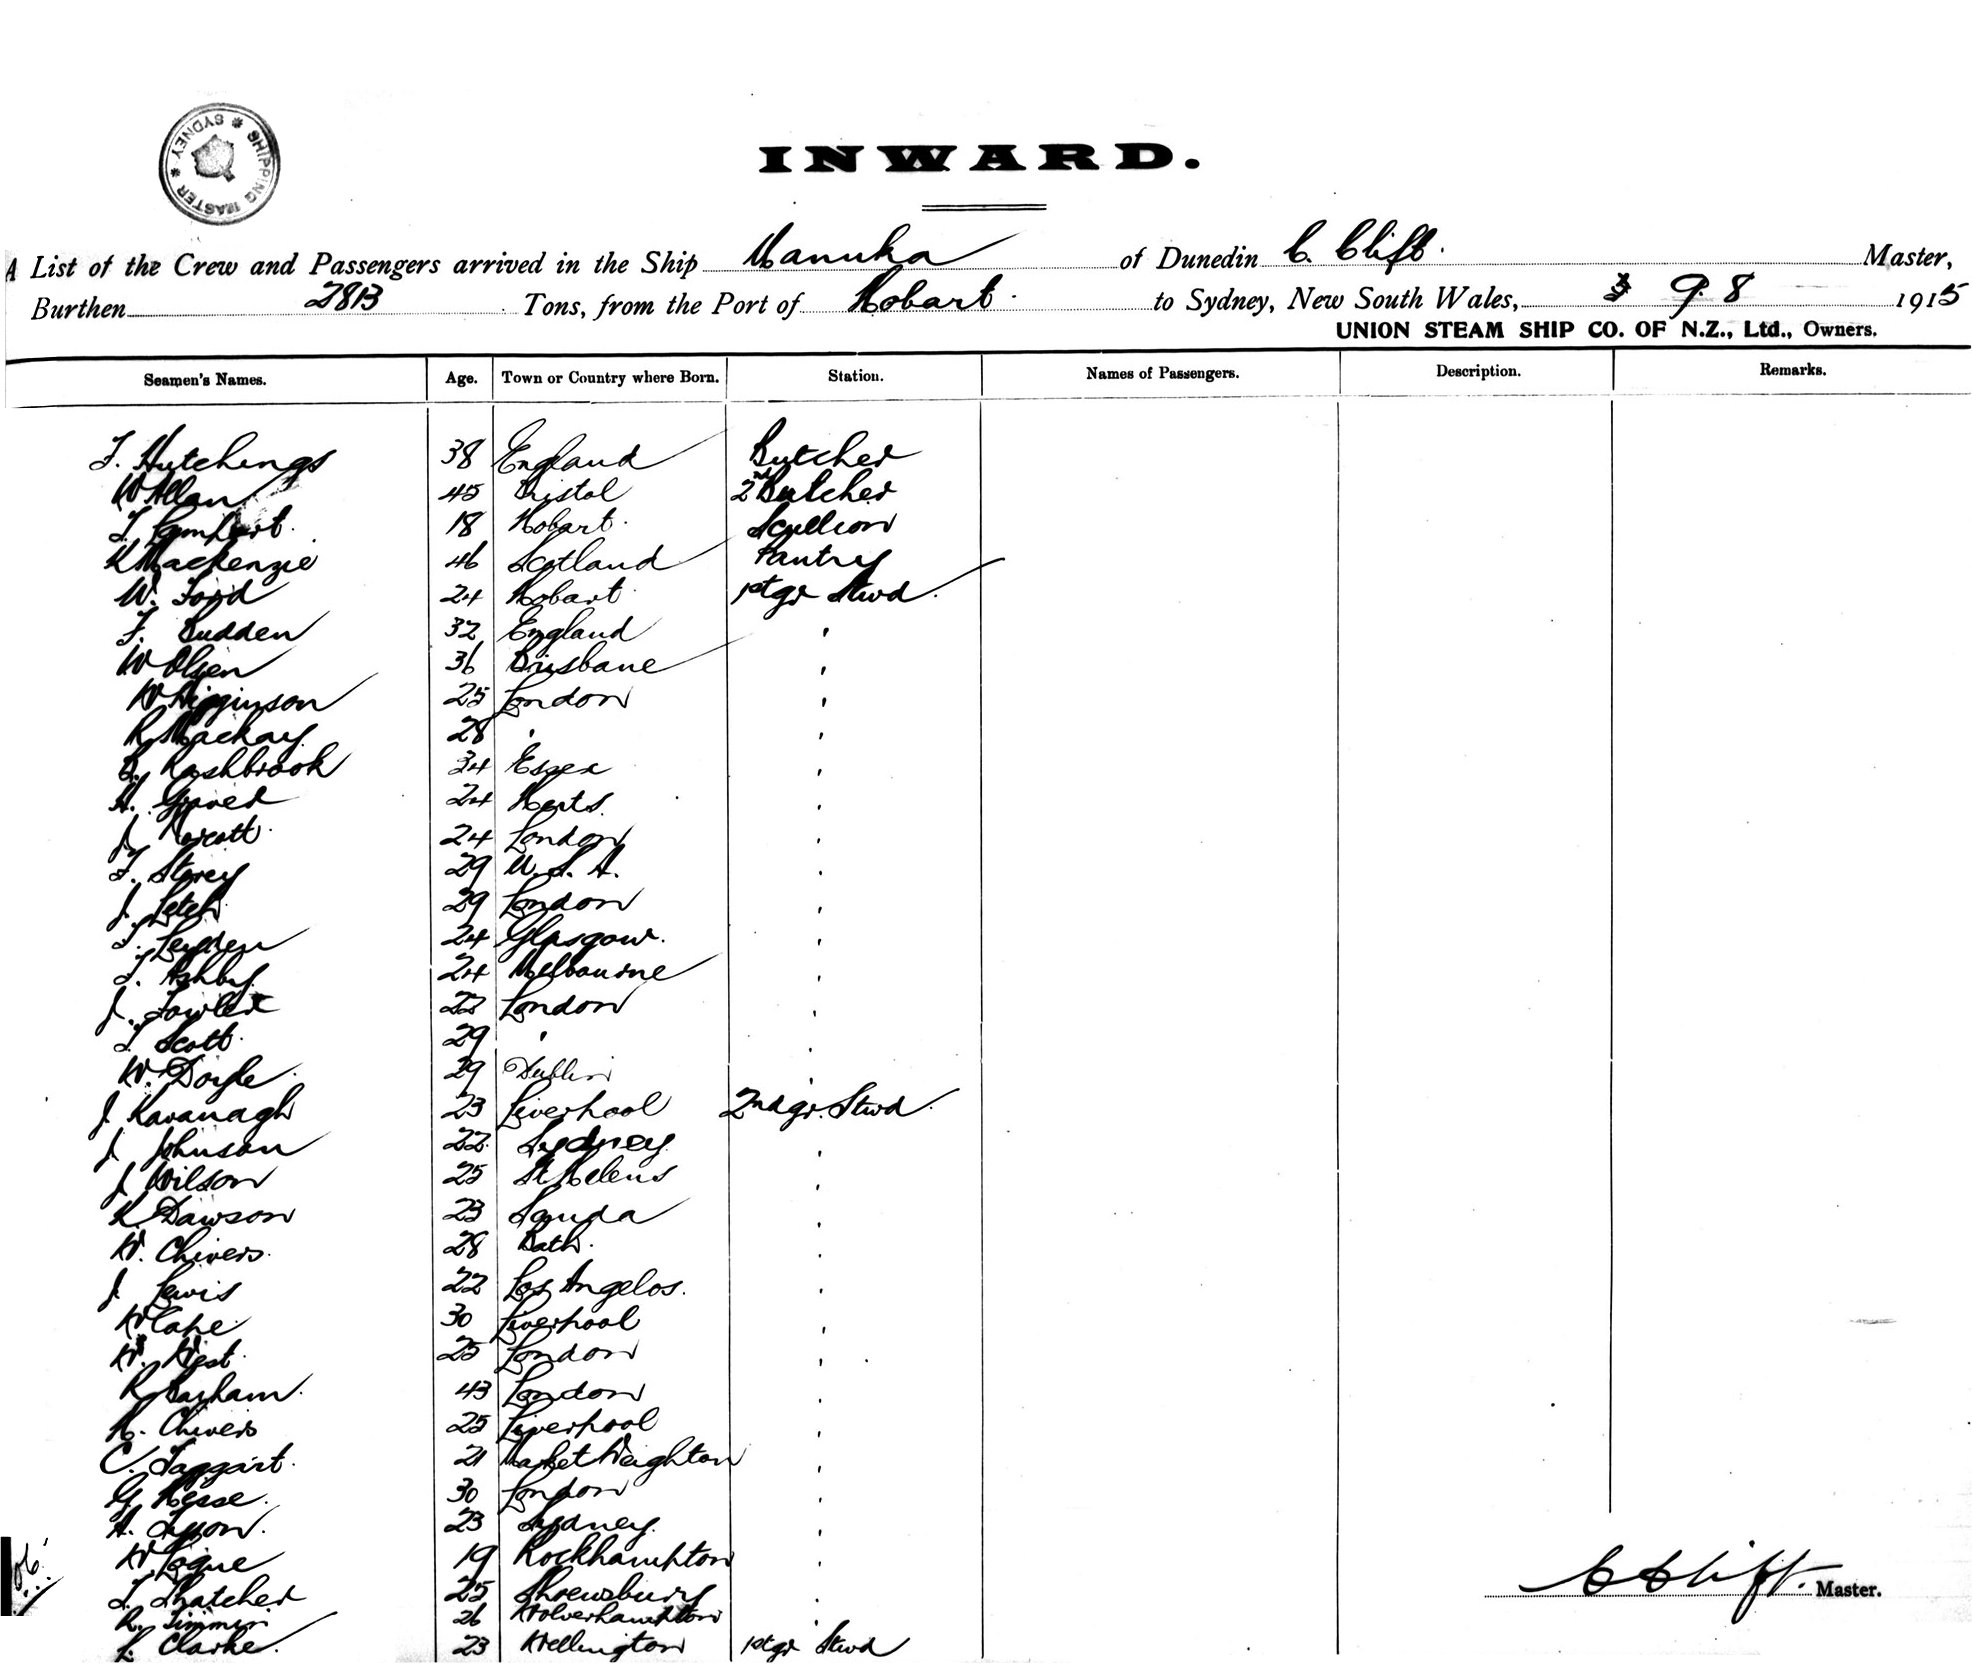 SHIPPING MASTER * SYDNEY *
INWARD.
A List of the Crew and Passengers arrived in the Ship Manuka of Dunedin C. Clift. Master,
Burthen 2813 Tons, from the Port of Hobart. to Sydney, New South Wales, 9. 8 1915
UNION STEAM SHIP CO. OF N.Z., Ltd., Owners.
Seamen's Names. Age. Town or Country where Born. Station. Names of Passengers. Description. Remarks.
F. Hutchings 38 England Butcher
W Allan 45 Bristol 2nd Butcher
18 Hobart. Scullion
K Mackenzie 46 Scotland Pantry
W. Ford 24 Hobart. 1st gr Stwd.
F. Budden 32 England "
W Olsen 36 Brisbane "
W Higginson 25 London "
R. Mackay 28 " "
Rashbrook 34 Essex "
24 Herts. "
J. 24 London "
F. Storey 29 U.S.A. "
J. Letch 29 London "
T. Leyden 24 Glasgow. "
T. Ashby 24 Melbourne "
J. Fowler 22 London "
T. Scott. 29 " "
W. Doyle. 29 Dublin "
J. Kavanagh 23 Liverpool 2nd gr. Stwd.
J. Johnson 22 Sydney "
J. Wilson 25 St Helens "
K. Dawson 23 "
W. Chivers. 28 Bath. "
J. Lewis 22 Los Angelos. "
W Cape 30 Liverpool "
W. West. 25 London "
R. Barham. 43 London "
H. Chivers 25 Liverpool "
C. Taggart. 21 Market Weighton "
G. Hesse. 30 London "
A. Tyson. 23 Sydney. "
W. Logue 19 Rockhampton "
T. Thatcher 25 Shrewsbury "
R. Timmin 26 Wolverhampton
L. Clarke. 23 Wellington 1st gr Stwd
C Clift. Master.